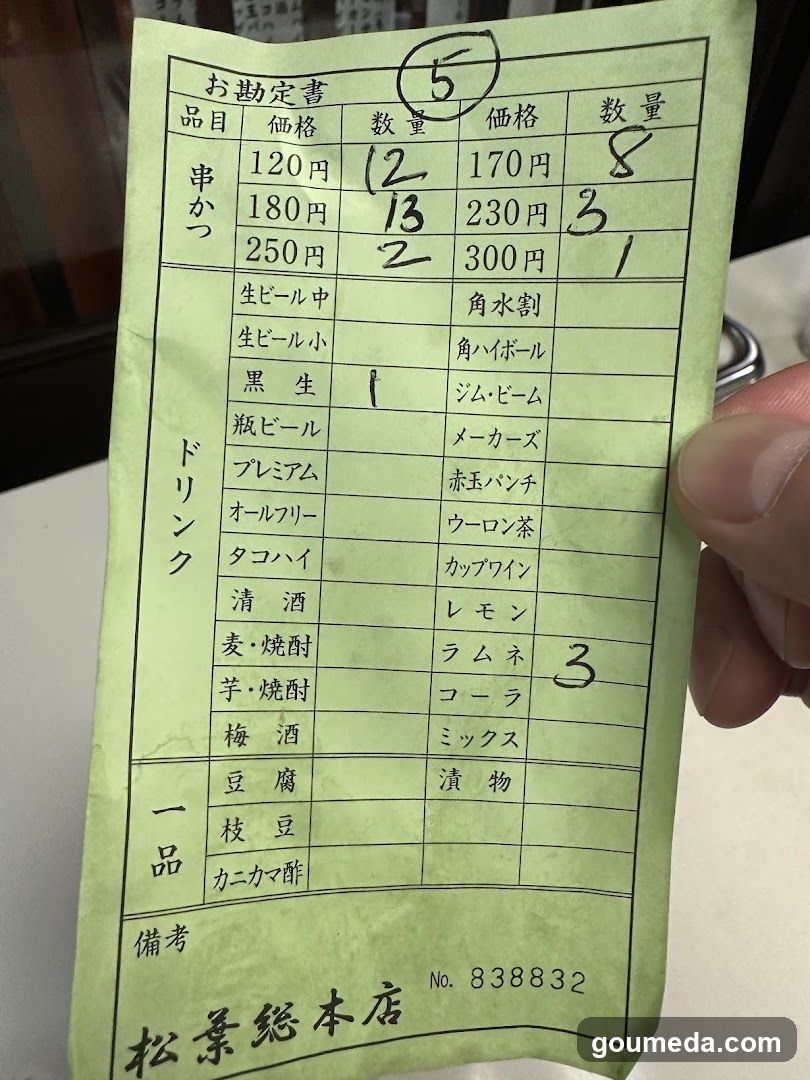 5
お勘定書
品目 価格 数量 価格 数量
串かつ
120円 12 170円 8
180円 13 230円 3
250円 2 300円 1
ドリンク
生ビール中 角水割
生ビール小 角ハイボール
黒生 1 ジム・ビーム
瓶ビール メーカーズ
プレミアム 赤玉パンチ
オールフリー ウーロン茶
タコハイ カップワイン
清酒 レモン
麦・焼酎 ラムネ 3
芋・焼酎 コーラ
梅酒 ミックス
一品
豆腐 漬物
枝豆
カニカマ酢
備考
No. 838832
松葉総本店
goumeda.com